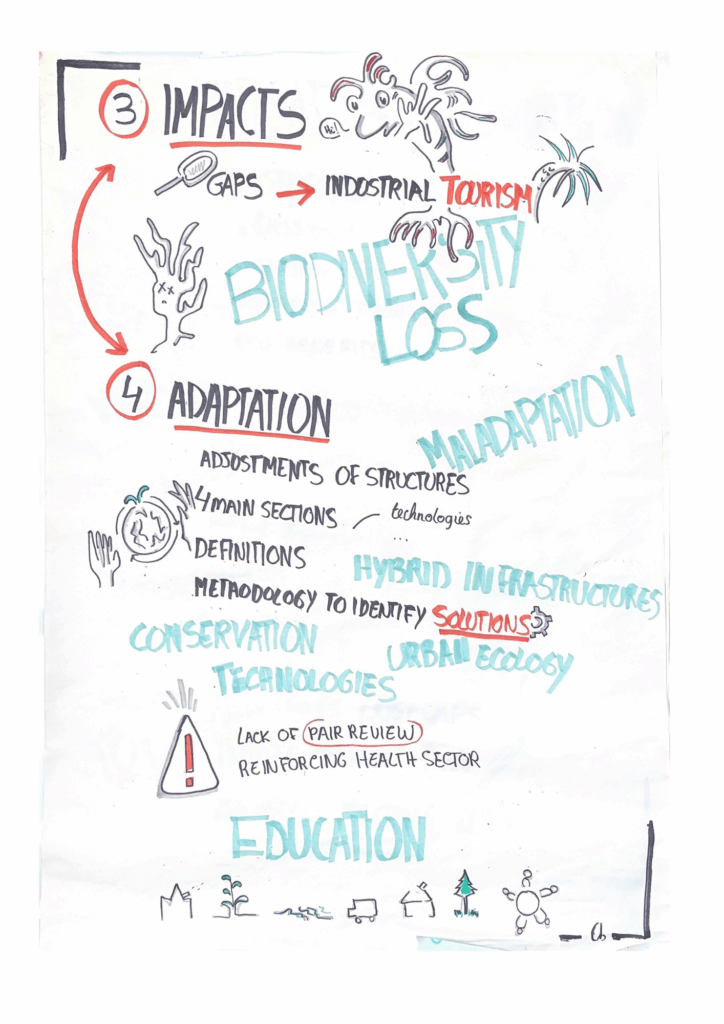 3 IMPACTS
Hi!
GAPS → INDUSTRIAL TOURISM
BIODIVERSITY
LOSS
4 ADAPTATION
MALADAPTATION
ADJUSTMENTS OF STRUCTURES
4 MAIN SECTIONS
technologies
...
DEFINITIONS
HYBRID INFRASTRUCTURES
METHODOLOGY TO IDENTIFY SOLUTIONS
CONSERVATION
URBAN ECOLOGY
TECHNOLOGIES
LACK OF PAIR REVIEW
REINFORCING HEALTH SECTOR
EDUCATION